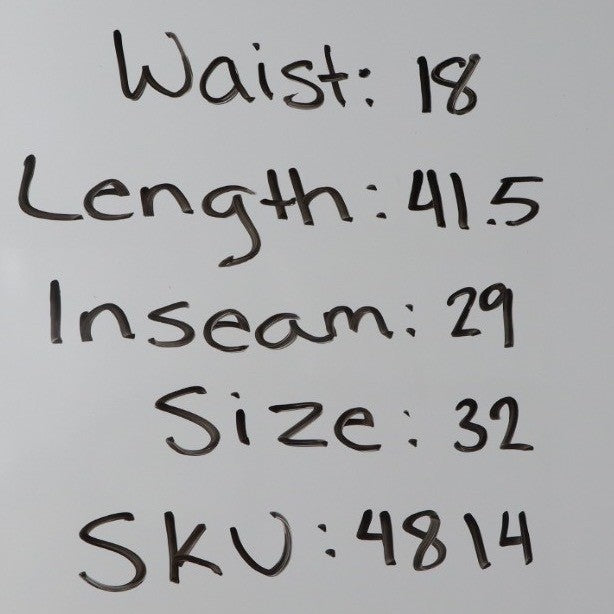 Waist: 18
Length: 41.5
Inseam: 29
Size: 32
SKU: 4814